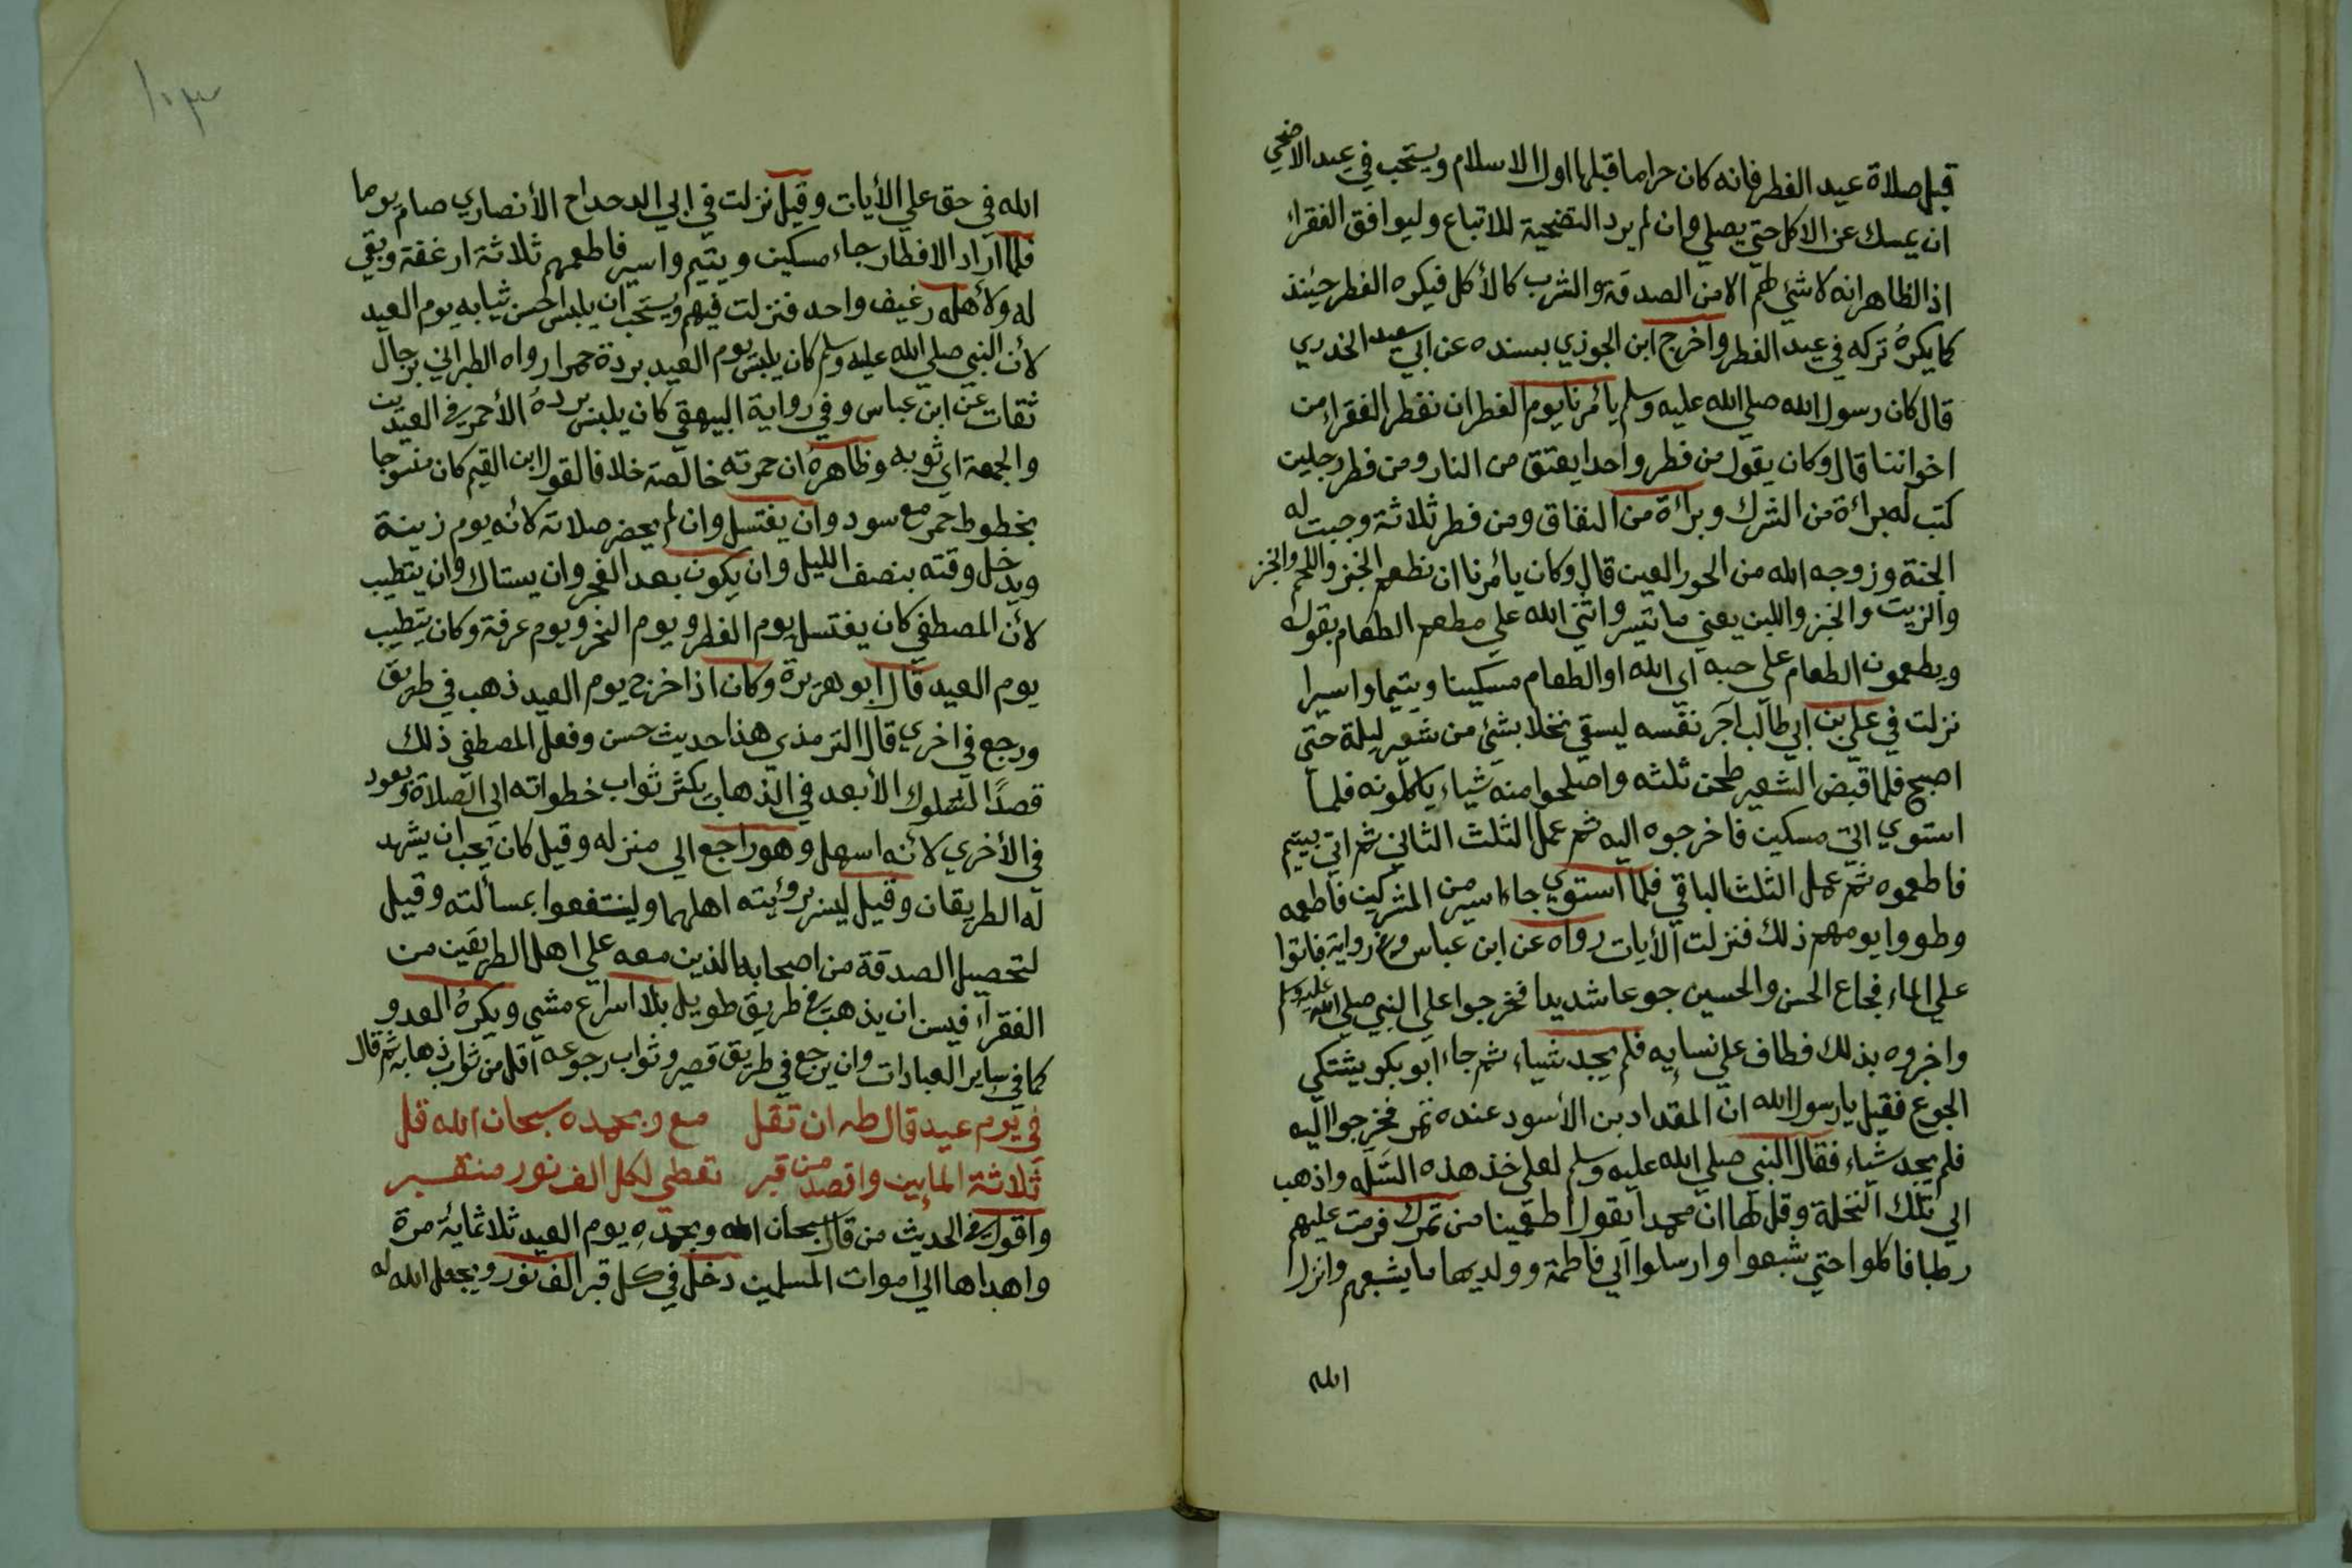 قبل صلاة عيد الفطر فانه كان حراما قبلها اول الاسلام ويستحب في عيد الاضحي
ان يمسك عن الاكل حتي يصلي وان لم يرد التضحية للاتباع وليوافق الفقراء
اذ الظاهر انه لا شئ لهم الا من الصدقة والشرب كالأكل فيكره الفطر حينئذ
كما يكره تركه في عيد الفطر واخرج ابن الجوزي بسنده عن ابي سعيد الخدري
قال كان رسول الله صلي الله عليه وسلم يأمرنا يوم الفطر ان نفطر الفقراء من
اخواننا قال وكان يقول من فطر واحدا يعتق من النار ومن فطر رجلين
كتب له براءة من الشرك وبراءة من النفاق ومن فطر ثلاثة وجبت له
الجنة وزوجه الله من الحور العين قال وكان يأمرنا ان نطعم الخبز واللحم والخبز
والزيت والخبز واللبن يعني ما تيسر واثني الله علي مطعم الطعام بقوله
ويطعمون الطعام علي حبه اي الله او الطعام مسكينا ويتيما واسيرا
نزلت في علي بن ابي طالب آجر نفسه ليسقي نخلا بشئ من شعير ليلة حتي
اصبح فلما قبض الشعير طحن ثلثه واصلحوا منه شياء ياكلونه فلما
استوي اتي مسكين فاخرجوه اليه ثم عمل الثلث الثاني ثم اتي يتيم
فاطعموه ثم عمل الثلث الباقي فلما استوي جاء اسير من المشركين فاطعمه
وطووا يومهم ذلك فنزلت الأيات رواه عن ابن عباس وفي رواية فباتوا
علي الماء فجاع الحسن والحسين جوعا شديدا فخرجوا علي النبي صلي الله عليه وسلم
واخبروه بذلك فطاف علي نسايه فلم يجد شياء ثم جاء ابو بكر يشتكي
الجوع فقيل يا رسول الله ان المقداد بن الأسود عنده تمر فخرجوا اليه
فلم يجد شياء فقال النبي صلي الله عليه وسلم لعلي خذ هذه السَلّه واذهب
الي تلك النخلة وقل لها ان محمدا يقول اطعمينا من تمرك فرمت عليهم
رطبا فاكلوا حتي شبعوا وارسلوا الي فاطمة وولديها ما يشبعهم وانزل
الله
١٠٣
الله في حق علي الأيات وقيل نزلت في ابي الدحداح الأنصاري صام يوما
فلما أراد الافطار جاء مسكين ويتيم واسير فاطعمهم ثلاثة ارغفة وبقي
له ولأهله رغيف واحد فنزلت فيهم ويُستحب ان يلبس احسن ثيابه يوم العيد
لأن النبي صلي الله عليه وسلم كان يلبس يوم العيد بردة حمرا رواه الطبراني برجال
ثقات عن ابن عباس وفي رواية البيهقي كان يلبس برده الأحمر في العيدين
والجمعة اي ثوبه وظاهره ان حمرته خالصة خلافا لقول ابن القيم كان منسوجا
بخطوط حمر مع سود وان يغتسل وان لم يحضر صلاته لأنه يوم زينة
ويدخل وقته بنصف الليل وان يكون بعد الفجر وان يستاك وان يتطيب
لأن المصطفي كان يغتسل يوم الفطر ويوم النحر ويوم عرفة وكان يتطيب
يوم العيد قال ابو هريرة وكان اذا خرج يوم العيد ذهب في طريق
ورجع في اخري قال الترمذي هذا حديث حسن وفعل المصطفي ذلك
قصدًا لسلوك الأبعد في الذهاب يكثر ثواب خطواته الي الصلاة ويعود
في الأخري لأنه اسهل وهو راجع الي منزله وقيل كان يحب ان يشهد
له الطريقان وقيل ليسر برؤيته اهلهما ولينتفعوا بمسألته وقيل
لتحصيل الصدقة من اصحابه الذين معه علي اهل الطريقين من
الفقراء فيسن ان يذهب في طريق طويل بلا اسراع مشي ويكره العدو
كما في ساير العبادات وان يرجع في طريق قصير وثواب رجوعه أقل من ثواب ذهابه ثم قال
في يوم عيد قال طه ان تقل مع وبحمده سبحان الله قل
ثلاثة المايين واقصد من قبر تعطي لكل الف نور منتقسر
واقول في الحديث من قال سبحان الله وبحمدهِ يوم العيد ثلاثماية مرة
واهداها الي اموات المسلمين دخل في كل قبر الف نور ويجعل الله له